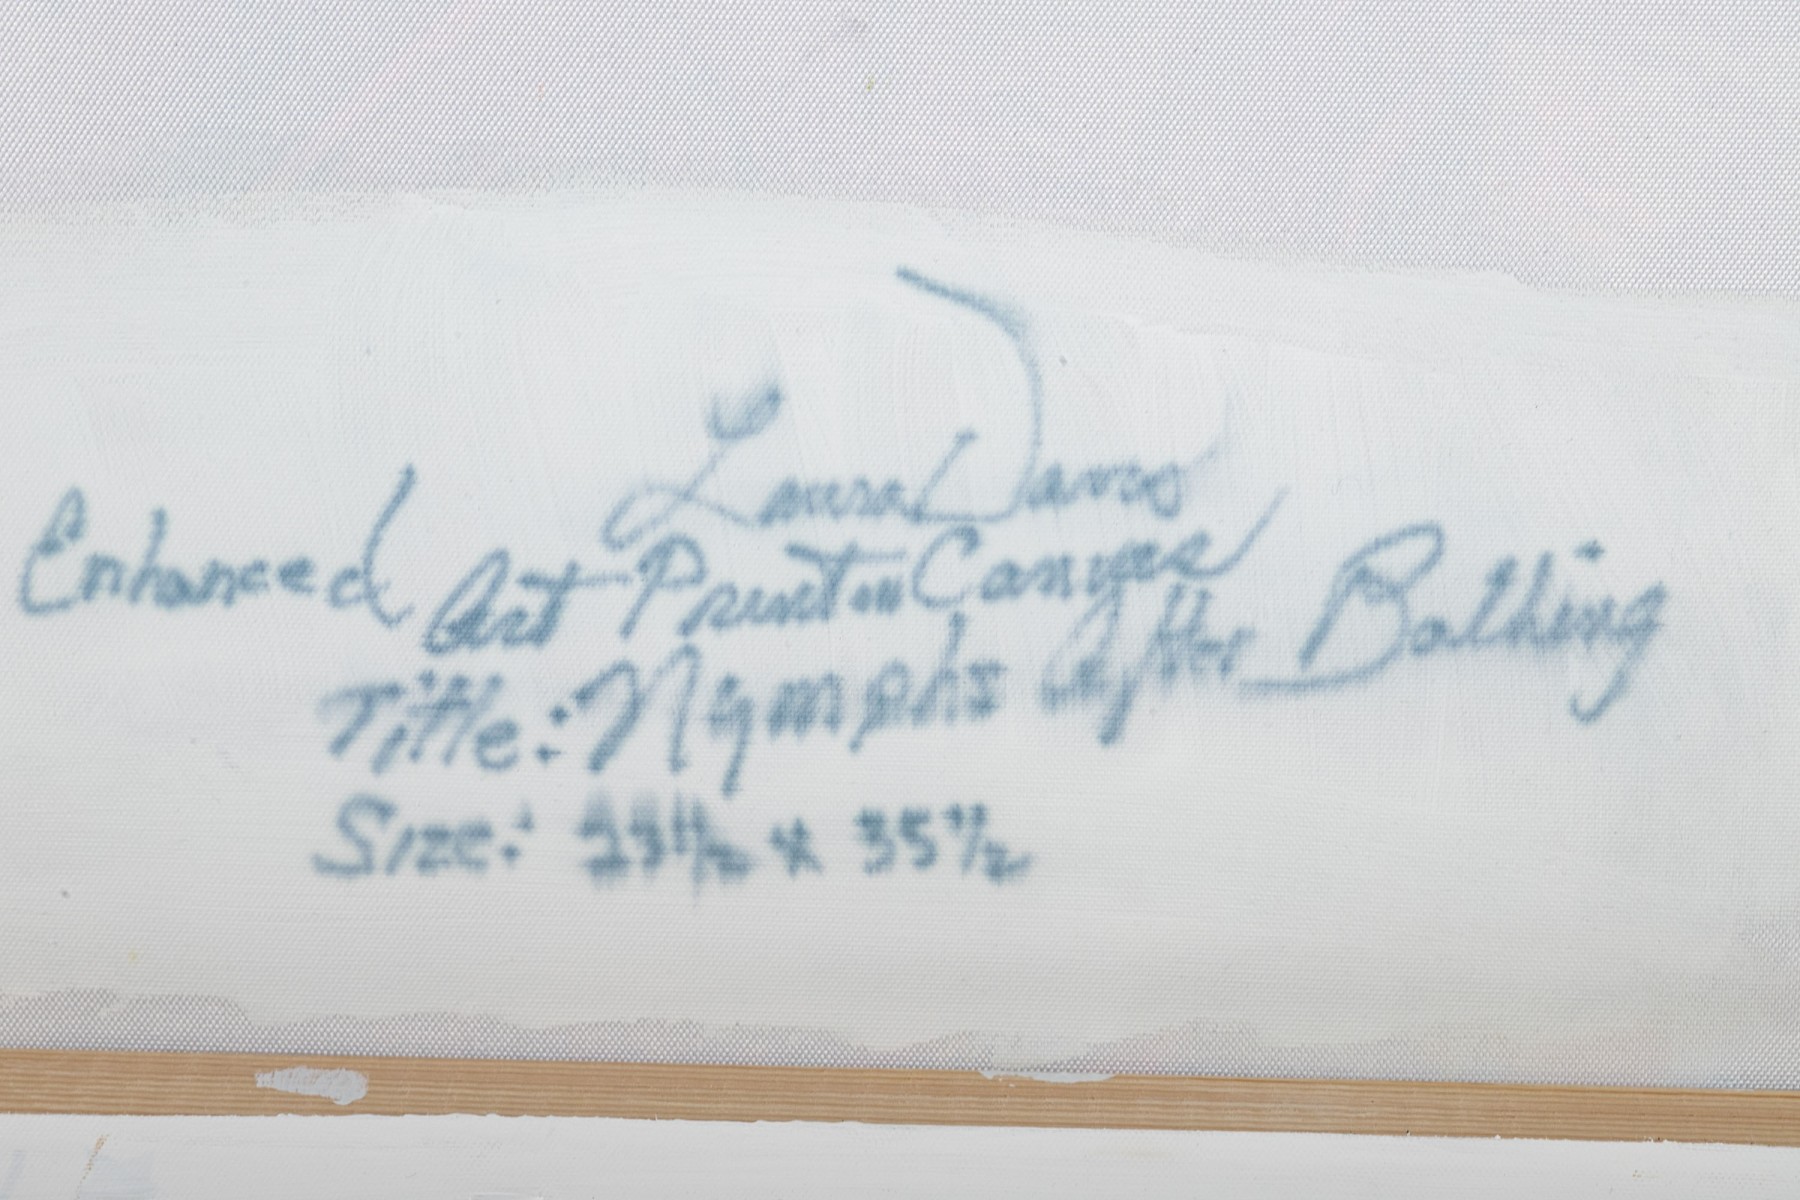 Laura Davis
Enhanced Art Print on Canvas
Title: Nymphs After Bathing
Size: x 35 1/2